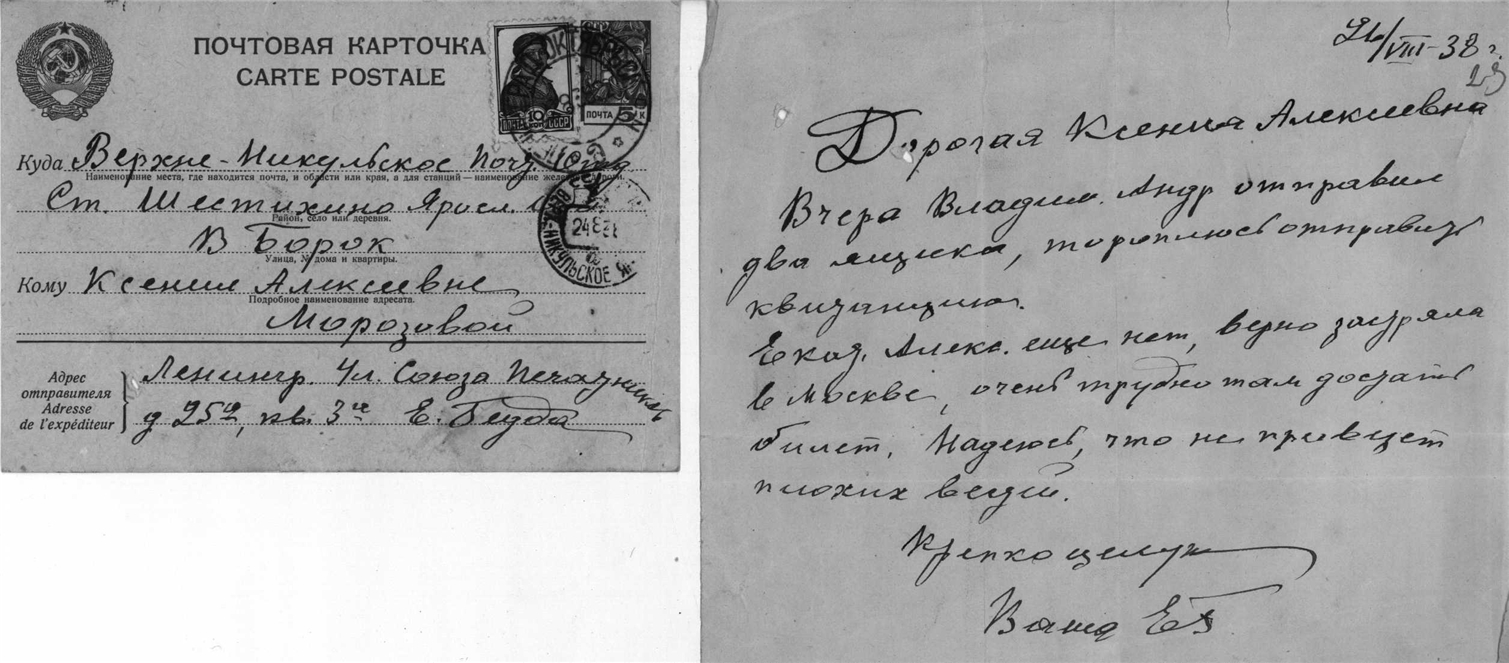 ПОЧТОВАЯ КАРТОЧКА
CARTE POSTALE
ПОЧТА 10 КОП. СССР
ПОЧТА 5 К
Куда Верхне-Никульское Почт.
Наименование места, где находится почта, и области или края, а для станций — наименование
Ст. Шестихино Яросл.
Район, село или деревня.
В Борок
Улица, № дома и квартиры.
24 8 38
НИКУЛЬСКОЕ
Кому Ксении Алексеевне
Подробное наименование адресата.
Морозовой
Адрес отправителя
Adresse de l'expéditeur
Ленингр. Ул. Союза Печатников
д 25, кв. 3 Е.
/VIII-38 г.
Дорогая Ксения Алексеевна
Вчера Владим. Андр отправил
два ящика, тороплюсь отправить
квитанцию.
Екат. Алекс. еще нет, верно застряла
в Москве, очень трудно там достать
билет. Надеюсь, что не привезет
плохих вестей.
Крепко целую
Ваша ЕБ